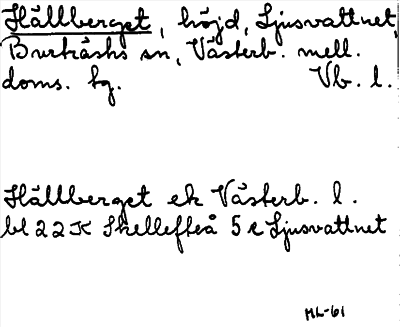 Hällberget, höjd, Ljusvattnet,
Burträsks sn, Västerb. mell.
doms. tg. Vb. l.
Hällberget ek Västerb. l.
bl 22K Skellefteå 5 e Ljusvattnet
ML-61